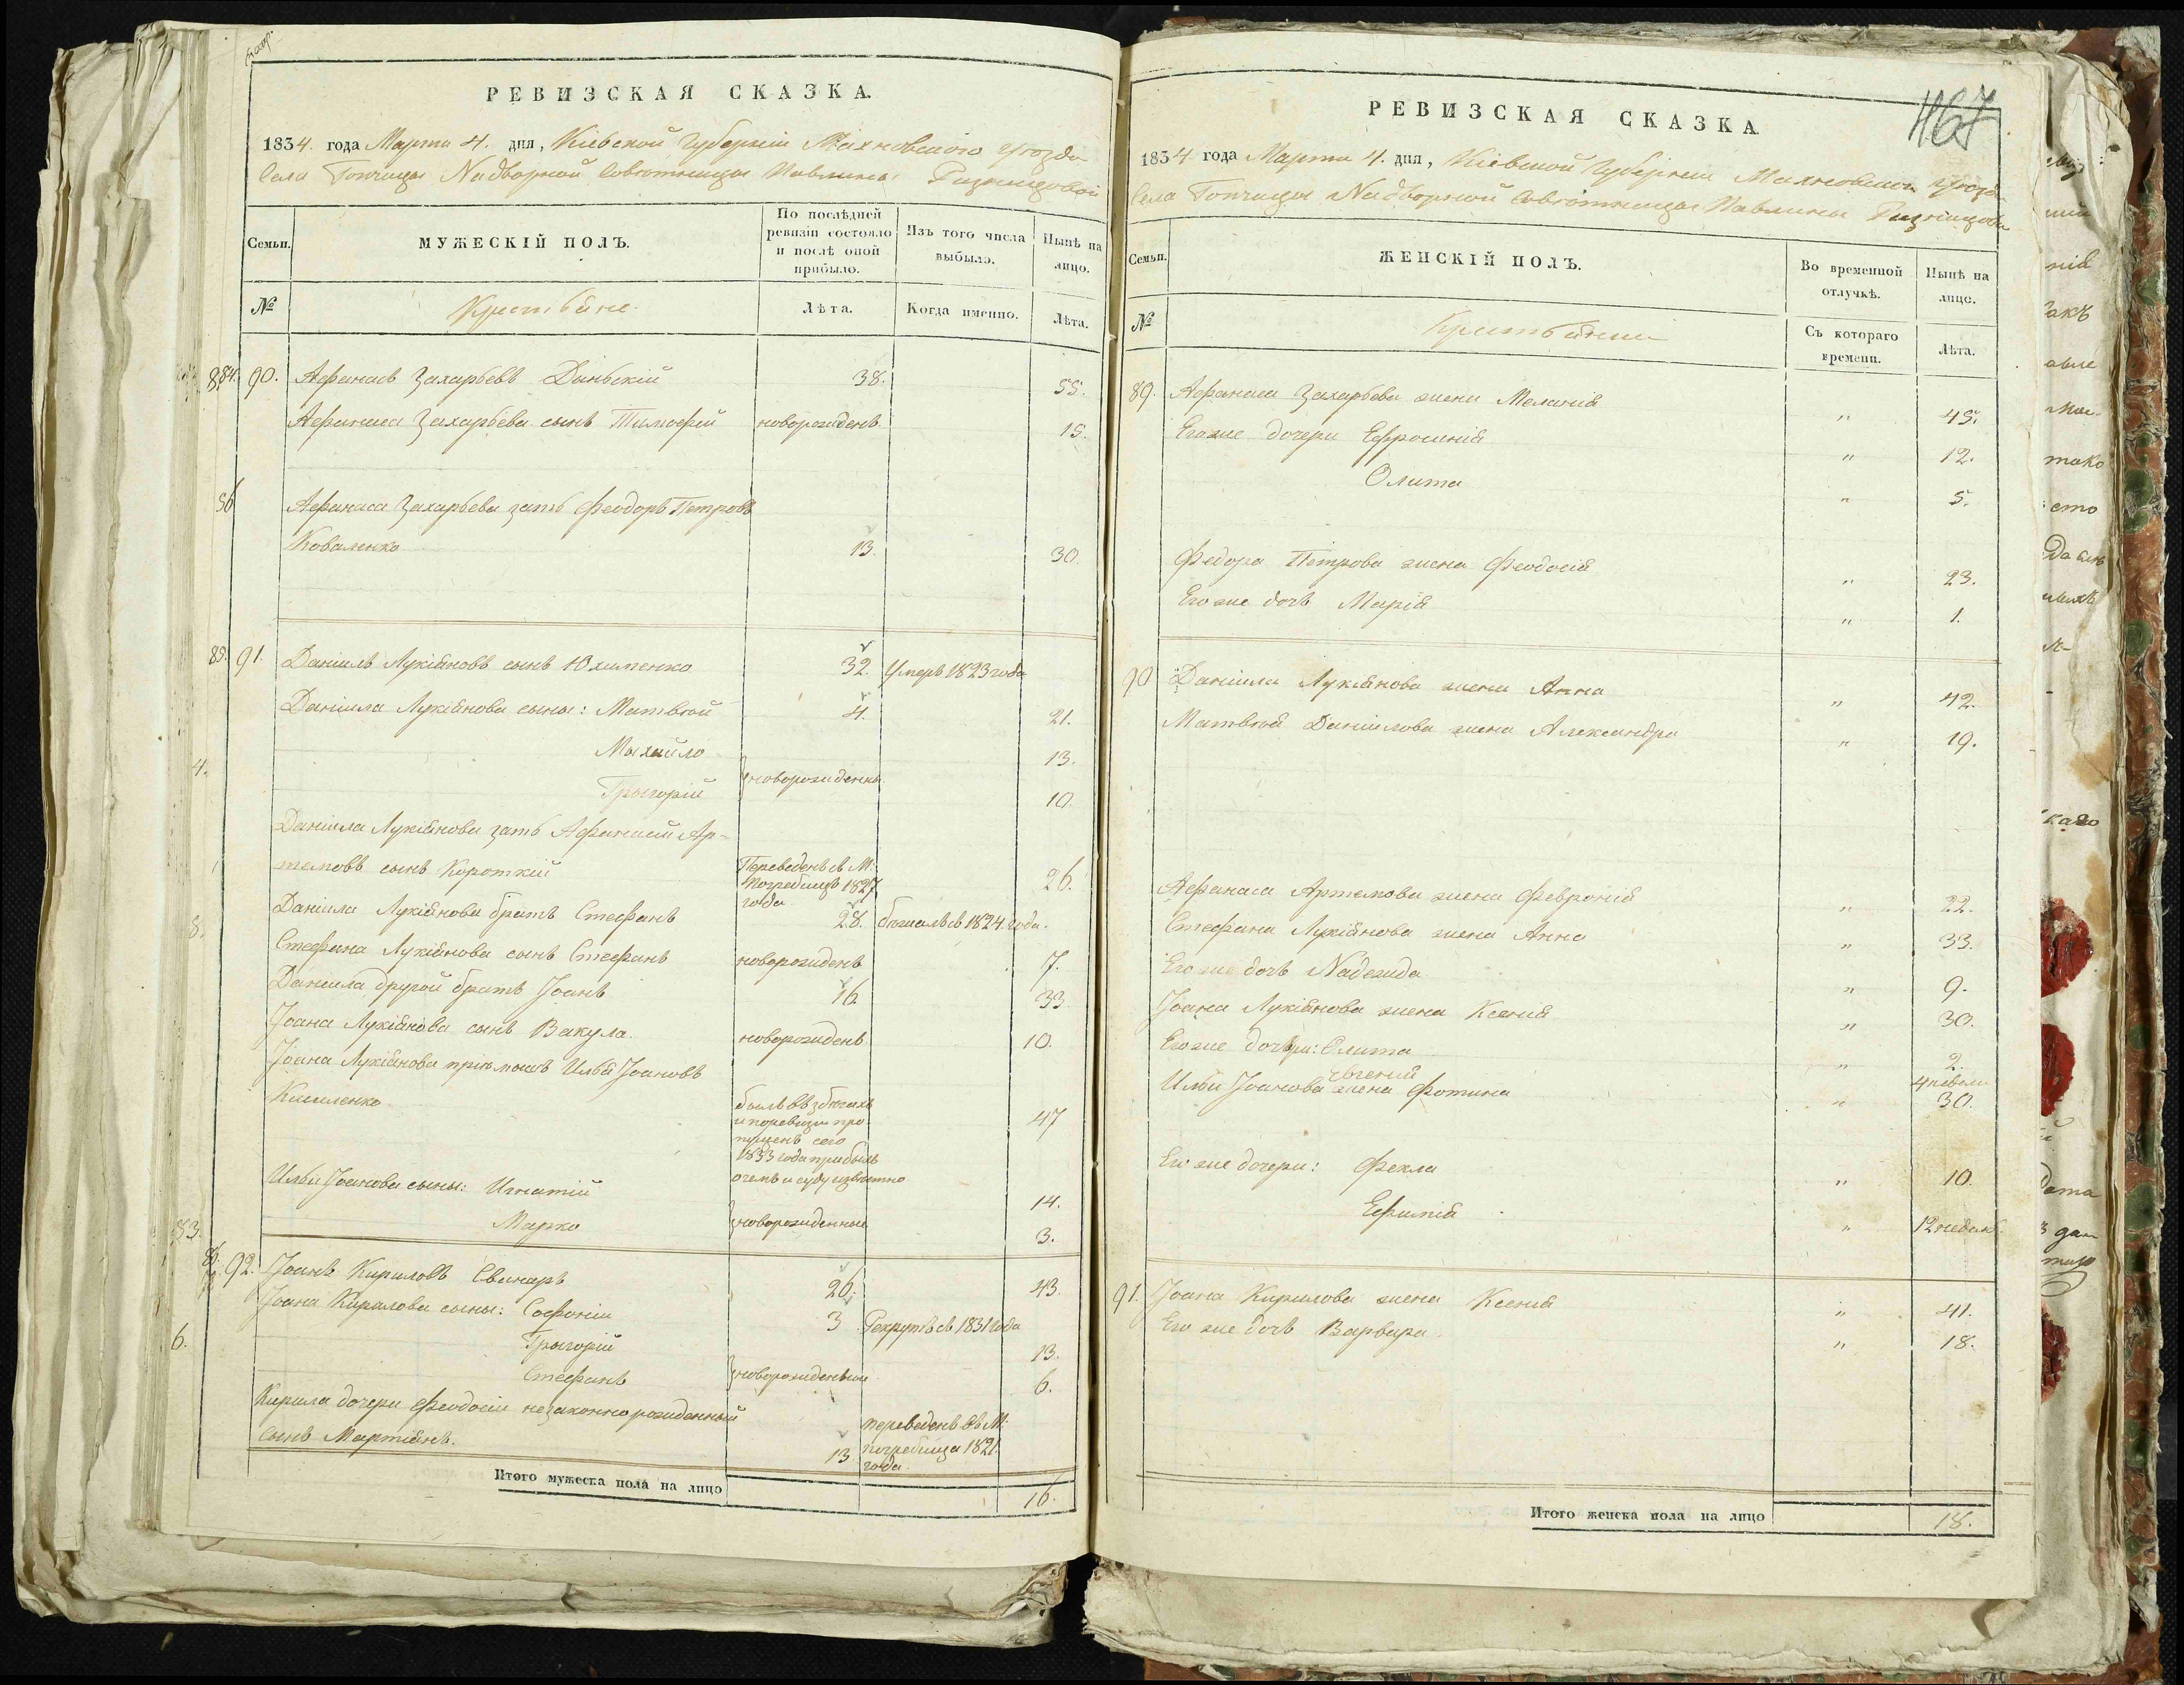 РЕВИЗСКАЯ СКАЗКА.
1834. года Марта 4. дня, Кіевской Губерніи Махновского уѣзда
Села Топчицы Надворной Совѣтницы Павлины
Семьи.
МУЖЕСКІЙ ПОЛЪ.
По послѣдней ревизіи состояло и послѣ оной прибыло.
Изъ того числа выбыло.
Нынѣ на лицо.
№
Крестьяне.
Лѣта.
Когда именно.
Лѣта.
84. 90. Афанасъ Захарьевъ Даньскій 38. 55.
Афанаса Захарьева сынъ Тимофей новорожденъ 15.
56 Афанаса Захарьева зять Феодоръ Петровъ
Коваленко 13. 30.
85. 91. Даніилъ Лукіяновъ сынъ Юхименко 32. Умеръ 1823 года
Даніила Лукіянова сыны: Матвѣй 4. 21.
Мыхайло 13.
4. новорожденны
Грыгорій 10.
Даніила Лукіянова зять Афанасій Ар-
темовъ сынъ Короткій Переведенъ съ М: Погребищъ 1827 года 26.
8. Даніила Лукіянова братъ Стефанъ 28. бѣжалъ съ 1824. года.
Стефана Лукіянова сынъ Стефанъ новорожденъ 7.
Даніила другой братъ Іоанъ 16. 33.
Іоана Лукіянова сынъ Вакула. новорожденъ 10.
Іоана Лукіянова пріймошъ Илья Іоановъ
Кисиленко былъ въ збѣгахъ и поревизіи пропущенъ сего 1833 года прибылъ очемъ и суду извѣстно 47
Ильи Іоанова сыны: Игнатій 14.
новорожденные
53. Марко 3.
92. Іоанъ Кириловъ Свинаръ 26. 43.
Іоана Кирилова сыны: Софоній 3 Рекрутъ съ 1831 года
6. Грыгорій 13.
новорожденныи
Стефанъ 6.
Кирила дочери Феодосіи незаконнорожденный
сынъ Мартіянъ. 13. переведенъ въ М: погребища 1821. года.
Итого мужеска пола на лицо 16.
РЕВИЗСКАЯ СКАЗКА.
467
1834 года Марта 4. дня, Кіевской Губерніи Махновского уѣзда
Села Топчицы Надворной Совѣтницы Павлины
Семьи.
ЖЕНСКІЙ ПОЛЪ.
Во временной отлучкѣ.
Нынѣ на лицо.
№
Съ котораго времени.
Лѣта.
89. Афанаса Захарьева жена Меланія " 45.
Егоже дочери Ефросинія " 12.
Олита " 5.
Федора Петрова жена Феодосія " 23.
Егоже дочь Марія " 1.
90 Даніила Лукіянова жена Анна " 42.
Матвѣя Даніилова жена Александра " 19.
Афанаса Артемова жена Февронія " 22.
Стефана Лукіянова жена Анна " 33.
Егоже дочь Надежда " 9.
Іоана Лукіянова жена Ксенія " 30.
Егоже дочери: Олита " 2.
Евгенія 4 недели
Ильи Іоанова жена Фотина " 30.
Егоже дочери: Фекла " 10.
Ефимія " 12 недель.
91. Іоана Кирилова жена Ксенія " 41.
Егоже дочь Варвара " 18.
Итого женска пола на лицо 18.